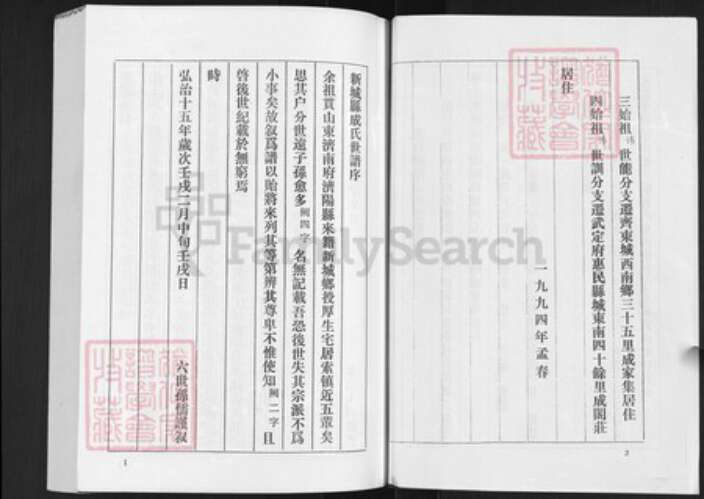 三始祖 世能分支遷齊東城西南鄉三十五里成家集居住
四始祖 世訓分支遷武定府惠民縣城東南四十餘里成閣莊
居住
一九九四年孟春
2
新城縣成氏世譜序
余祖貫山東濟南府濟陽縣來籍新城鄉授厚生宅居索镇近五輩矣
思其户分世遠子孫愈多闕四字名無記載吾恐後世失其宗派不爲
小事矣故叙爲譜以貽將來列其等第辨其尊卑不惟使知闕二字且
啓後世紀載於無窮焉
時
弘治十五年歲次壬戌二月中旬壬戌日
六世孫儒謹叙
1
FamilySearch